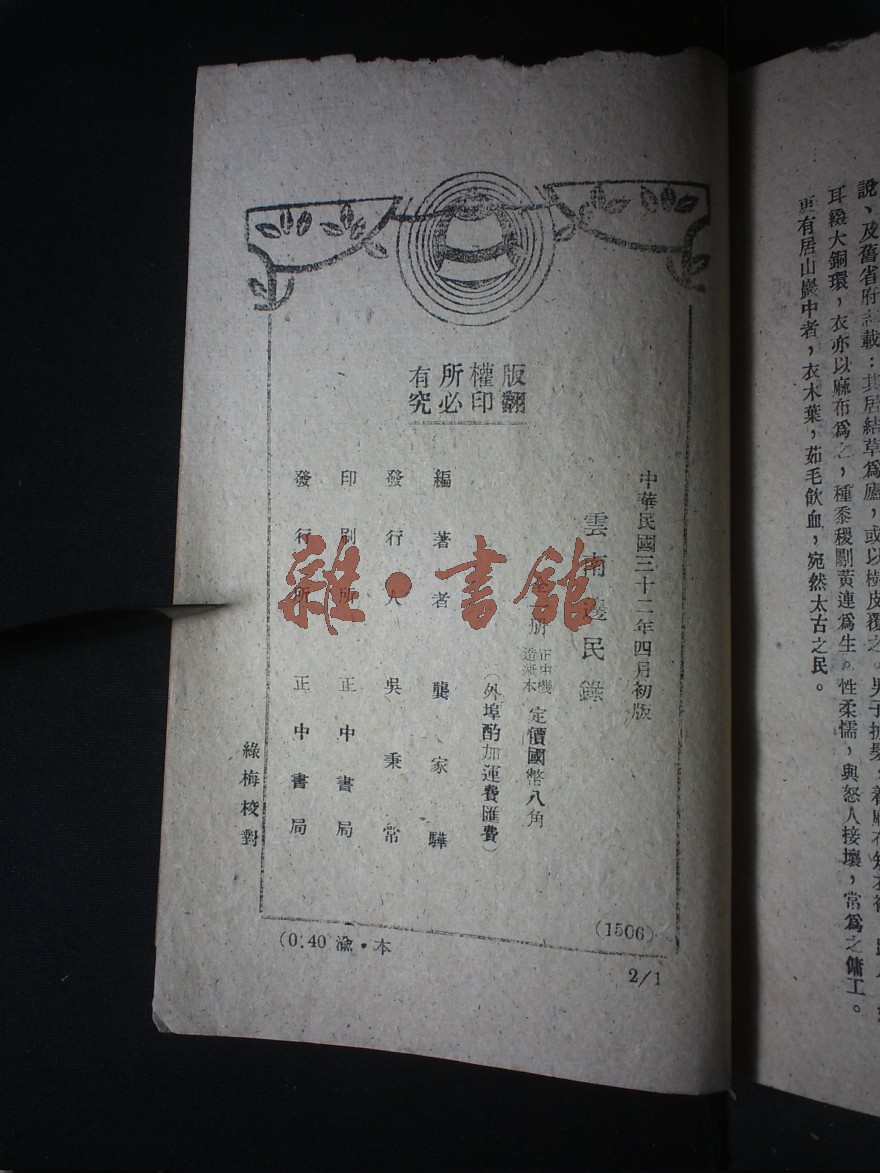 說、及舊省府志載：其居結草爲廬，或以樹皮覆之。男子披髮，着麻布短衣
耳綴大銅環，衣亦以麻布爲之，種黍稷劚黃連爲生。性柔懦，與怒人接壤，常爲之傭工。
更有居山巖中者，衣木葉，茹毛飮血，宛然太古之民。
版權所有
翻印必究
中華民國三十二年四月初版
雲南邊民錄
全一册
正中機
造紙本
定價國幣八角
（外埠酌加運費匯費）
編著者 龔家驊
發行人 吳秉常
印刷所 正中書局
發行所 正中書局
綠梅校對
(1506)
(0.40 渝・本
2/1
雜・書館